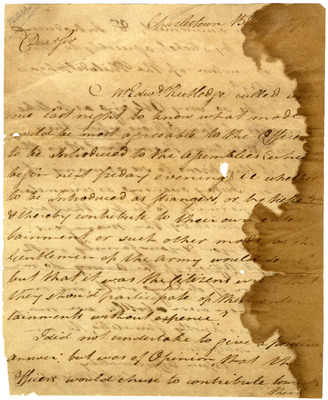 Charlestown 15
Dear Sir
Mr Edwd Rutledge called
me last night to know what mode
would be most agreeable to the Officers
to be introduced to the Assemblies which
begin next friday evening, i.e. whether
to be introduced as strangers, or by
& thereby contribute to their own
tainment or such other mode as the
Gentlemen of the Army would
but that it was the Citizens
they should participate of the
tainments without expence.
I did not undertake to give a positive
answer: but was of Opinion that the
Officers would chuse to contribute towards
their